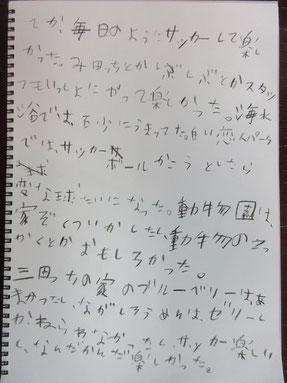 てか、毎日のようにサッカーして楽し
かった。み田っちとかしぶしぶとかスタッ
フもいっしょにやって楽しかった。海水
谷では、石少にうまってた。白い恋人パーク
では、サッカー ボールかこうとしたら
変な球たいになった。動物園は、
家ぞくついかしたし、動物の
かくとかおもしろかった。
三田っちの家のブルーベリーはあ
まかったし、ながしそうめんは、ゼリーし
か
し、なんだかんだ 楽しかった。